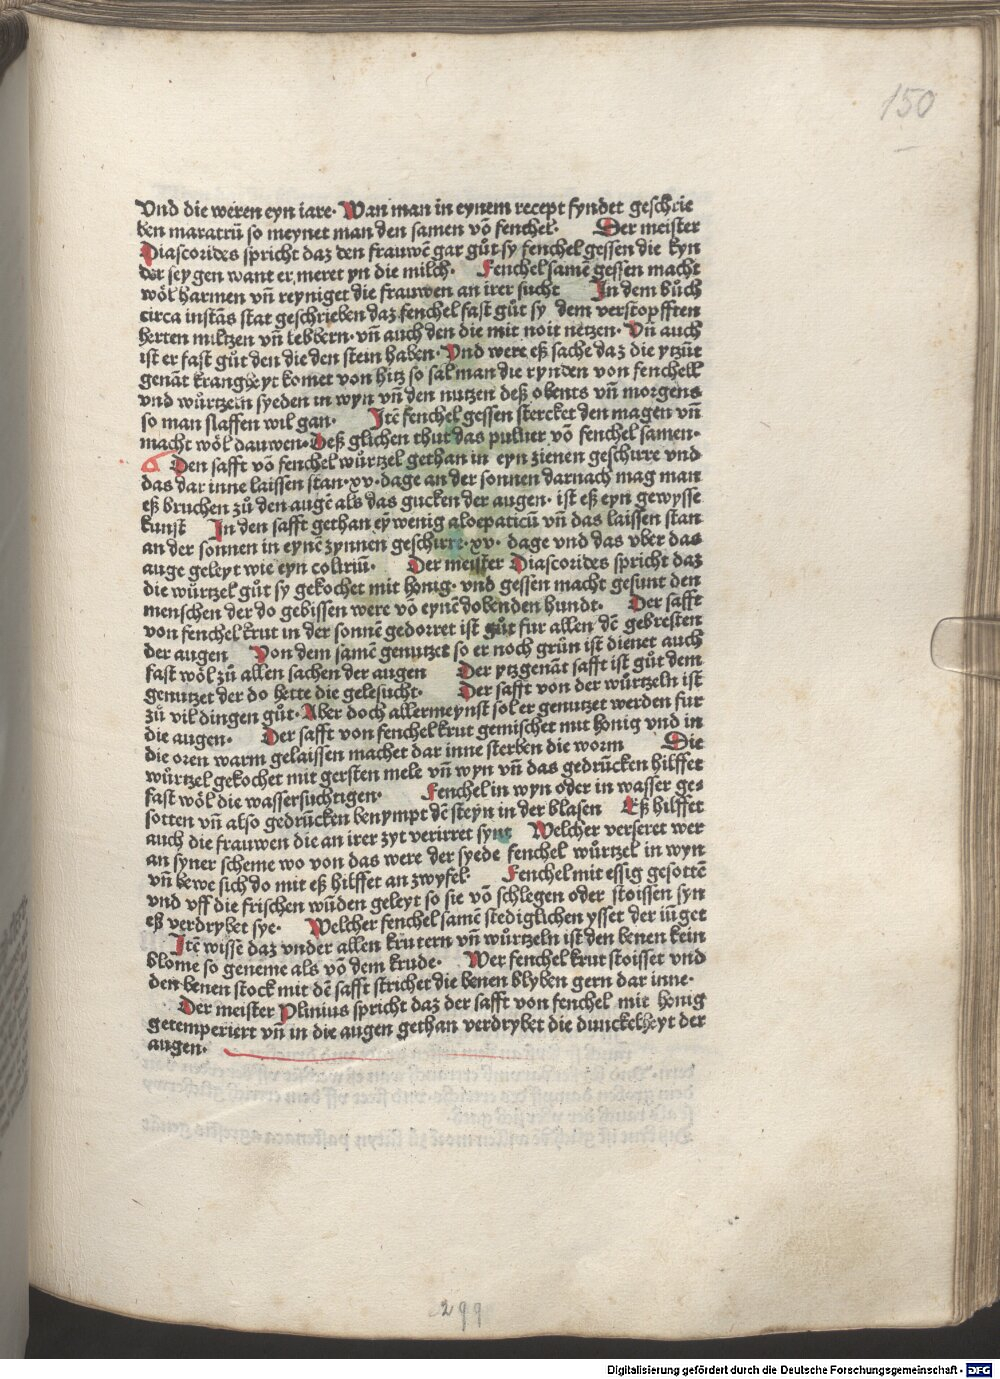 150
Vnd die weren eyn iare· Wan man in eynem recept fyndet geschrie
ben maratrū so meynet man den samen vō fenchel· Der meister
Diascorides spricht daz den frauwē gar gůt sy fenchel gessen die kyn
der seygen want er meret yn die milch· Fenchel samē gessen macht
wōl harmen vn̄ reyniget die frauwen an irer sucht In dem bůch
circa instās stat geschrieben daz fenchel fast gůt sy dem verstopfften
herten miltzen vn̄ lebbern· vn̄ auch den die mit noit netzen· Vn̄ auch
ist er fast gůt den die den stein haben· Vnd were eß sache daz die ytzūt
genāt krangheyt komet von hitz so sal man die rynden von fenchell
vnd wůrtzeln syeden in wyn vn̄ den nutzen deß obents vn̄ morgens
so man slaffen wil gan· Itē fenchel gessen stercket den magen vn̄
macht wōl dauwen· Deß glichen thut das puluer vō fenchel samen·
Den safft vō fenchel wůrtzel gethan in eyn zienen geschirre vnd
das dar inne laissen stan·xv·dage an der sonnen darnach mag man
eß bruchen zů den augē als das gucken der augen· ist eß eyn gewysse
kunst In den safft gethan eȳ wenig aloepaticū vn̄ das laissen stan
an der sonnen in eynē zynnen geschirre·xv· dage vnd das vber das
auge geleyt wie eyn colirīū· Der meister Diascorides spricht daz
die wůrtzel gůt sy gekochet mit honig· vnd gessen macht gesunt den
menschen der do gebissen were vō eynē dobenden hundt· Der safft
von fenchel krut in der sonnē gedorret ist gůt fur allen dē gebresten
der augen Von dem samē genutzet so er noch grůn ist dienet auch
fast wōl zů allen sachen der augen Der ytzgenāt safft ist gůt dem
genutzet der do hette die gelesucht· Der safft von der wůrtzeln ist
zů vil dingen gůt· Aber doch allermeynst sol er genutzet werden fur
die augen· Der safft von fenchel krut gemischet mit honig vnd in
die oren warm gelaissen machet dar inne sterben die worm Die
wůrtzel gekochet mit gersten mele vn̄ wyn vn̄ das gedruͤcken hilffet
fast wōl die wassersuchtigen· Fenchel in wyn oder in wasser ge-
sotten vn̄ also gedruͤcken benympt dē steyn in der blasen Eß hilffet
auch die frauwen die an irer zyt verirret synt Welcher verseret wer
an syner scheme wo von das were der syede fenchel wůrtzel in wyn
vn̄ bewe sich do mit eß hilffet an zwyfel· Fenchel mit essig gesottē
vnd vff die frischen wūden geleyt so sie vō schlegen oder stoissen syn
eß verdrybet sye· Welcher fenchel samē stediglichen ysset der iůget
Itē wissē daz vnder allen krutern vn̄ wůrtzeln ist den benen kein
blome so geneme als vō dem krude· Wer fenchel krut stoisset vnd
den benen stock mit dē safft strichet die benen blyben gern dar inne·
Der meister Plinius spricht daz der safft von fenchel mit honig
getemperiert vn̄ in die augen gethan verdrybet die dunckelheyt der
augen·
299
Digitalisierung gefördert durch die Deutsche Forschungsgemeinschaft · DFG